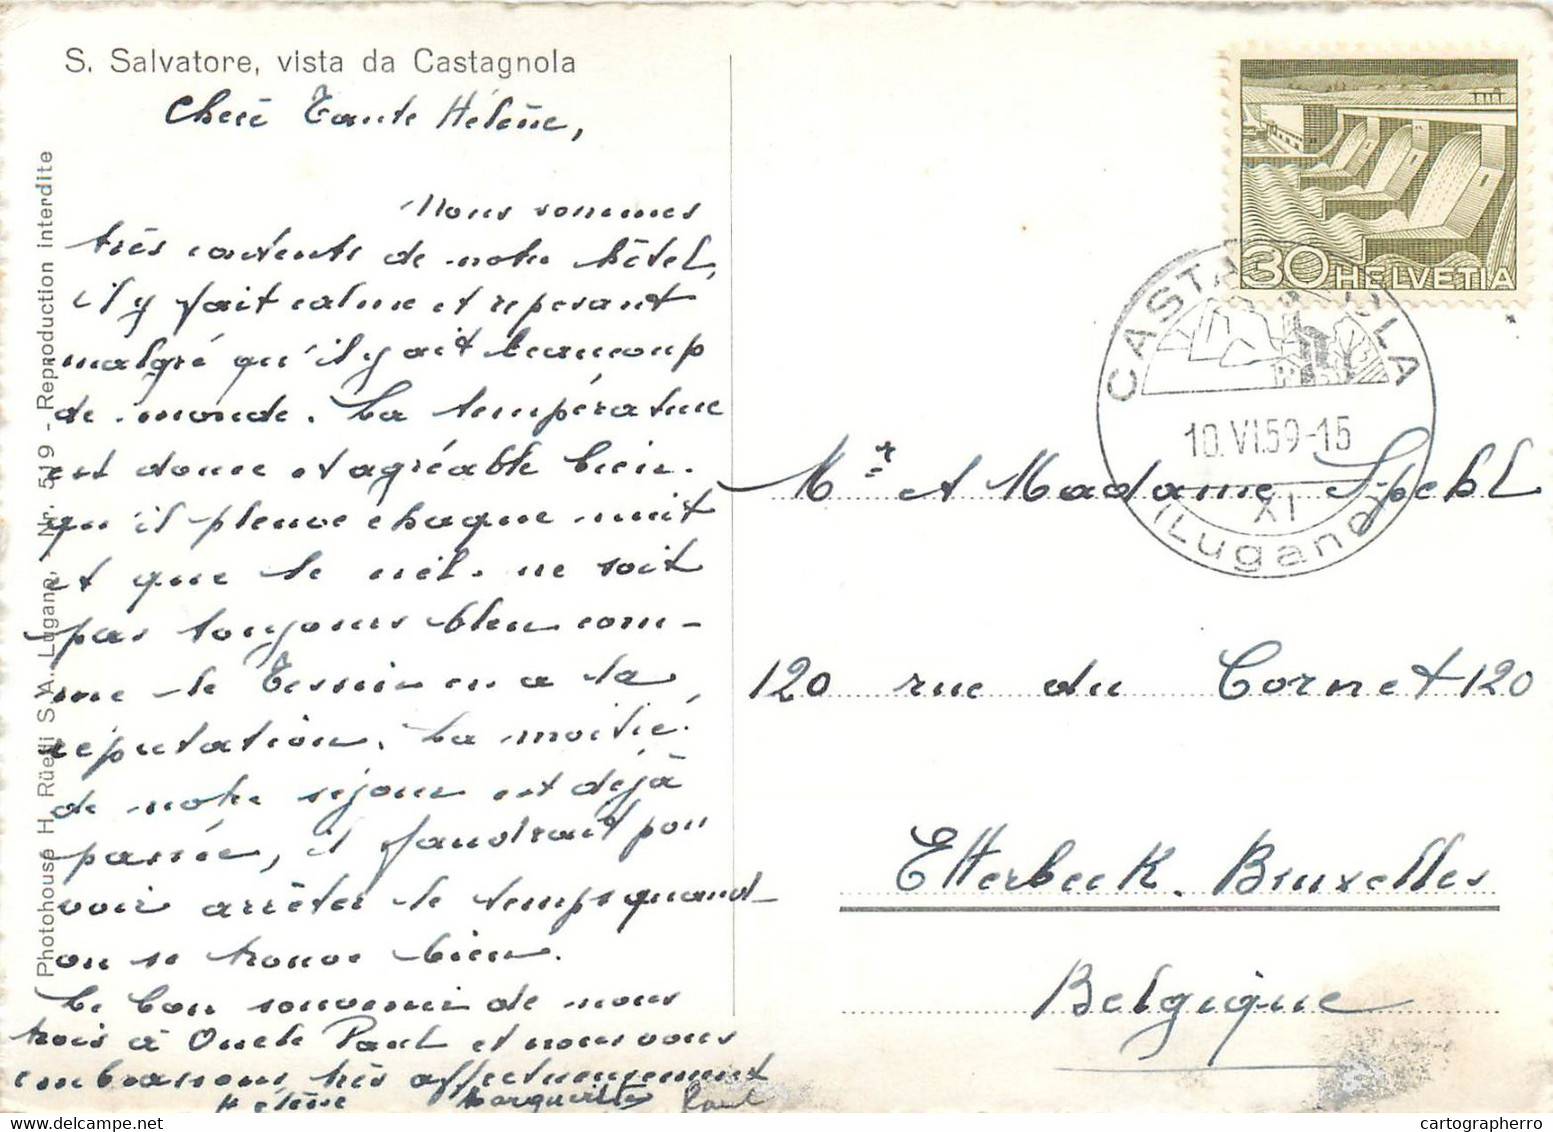 S. Salvatore, vista da Castagnola
Chère Tante Hélène,
Nous sommes
très contents de notre hôtel,
il y fait calme et reposant
malgré qu'il y ait beaucoup
de monde. La température
est douce et agréable bien
qu'il pleuve chaque nuit
et que le ciel ne soit
pas toujours bleu com-
me le Tessin en a la
réputation. La moitié
de notre séjour est déjà
passée, il faudrait pou
voir arrêter le temps quand
on se trouve bien.
Le bon souvenir de nous
trois à Oncle Paul et nous vous
embrassons très affectueusement
Hélène Marguerite Paul
Photohouse H. Rüedi S. A. Lugano, Nr. 519 - Reproduction interdite
30 HELVETIA
CASTAGNOLA
10.VI.59-15
XI
(Lugano)
Mr et Madame Spehl
120 rue du Cornet 120
Etterbeek. Bruxelles
Belgique
delcampe.net
cartographerro